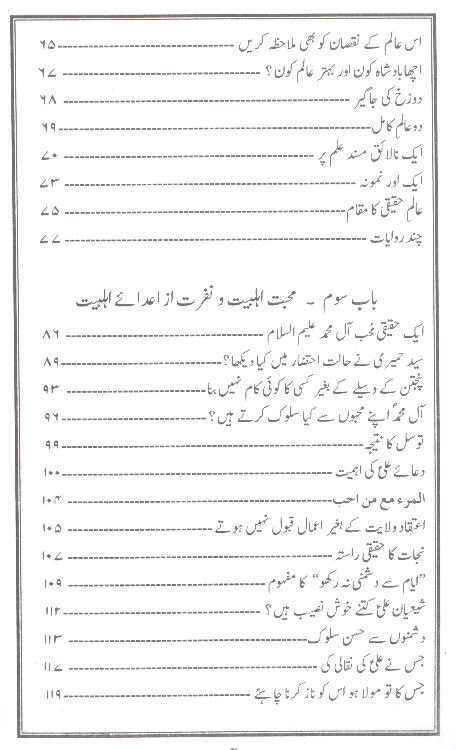 اس عالم کے نقصان کو بھی ملاحظہ کریں ۶۵
اچھا بادشاہ کون اور بہتر عالم کون؟ ۶۷
دوزخ کی جاگیر ۶۸
دو عالمِ کامل ۶۹
ایک نالائق مسند علم پر ۷۰
ایک اور نمونہ ۷۳
عالمِ حقیقی کا مقام ۷۵
چند روایات ۷۷
باب سوم ۔ محبت اہلبیت و نفرت از اعدائے اہلبیت
ایک حقیقی محب آل محمد علیہم السلام ۸۶
سید حمیری نے حالت احتضار میں کیا دیکھا؟ ۸۹
پنجتن کے وسیلے کے بغیر کسی کا کوئی کام نہیں بنا ۹۳
آل محمدؐ اپنے محبوں سے کیا سلوک کرتے ہیں؟ ۹۶
توسل کا نتیجہ ۹۹
دعائے علیؑ کی اہمیت ۱۰۰
المرء مع من احب ۱۰۴
اعتقاد ولایت کے بغیر اعمال قبول نہیں ہوتے ۱۰۵
نجات کا حقیقی راستہ ۱۰۷
”ایام سے دشمنی نہ رکھو“ کا مفہوم ۱۰۹
شیعیان علیؑ کتنے خوش نصیب ہیں؟ ۱۱۲
دشمنوں سے حسن سلوک ۱۱۳
جس نے علیؑ کی نقالی کی ۱۱۷
جس کا تو مولا ہو اس کو ناز کرنا چاہئے ۱۱۹